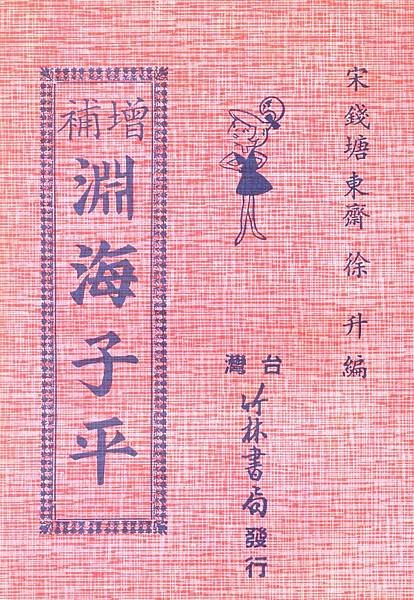 宋錢塘東齋徐升編
台灣
竹林書局發行
增補
淵海子平